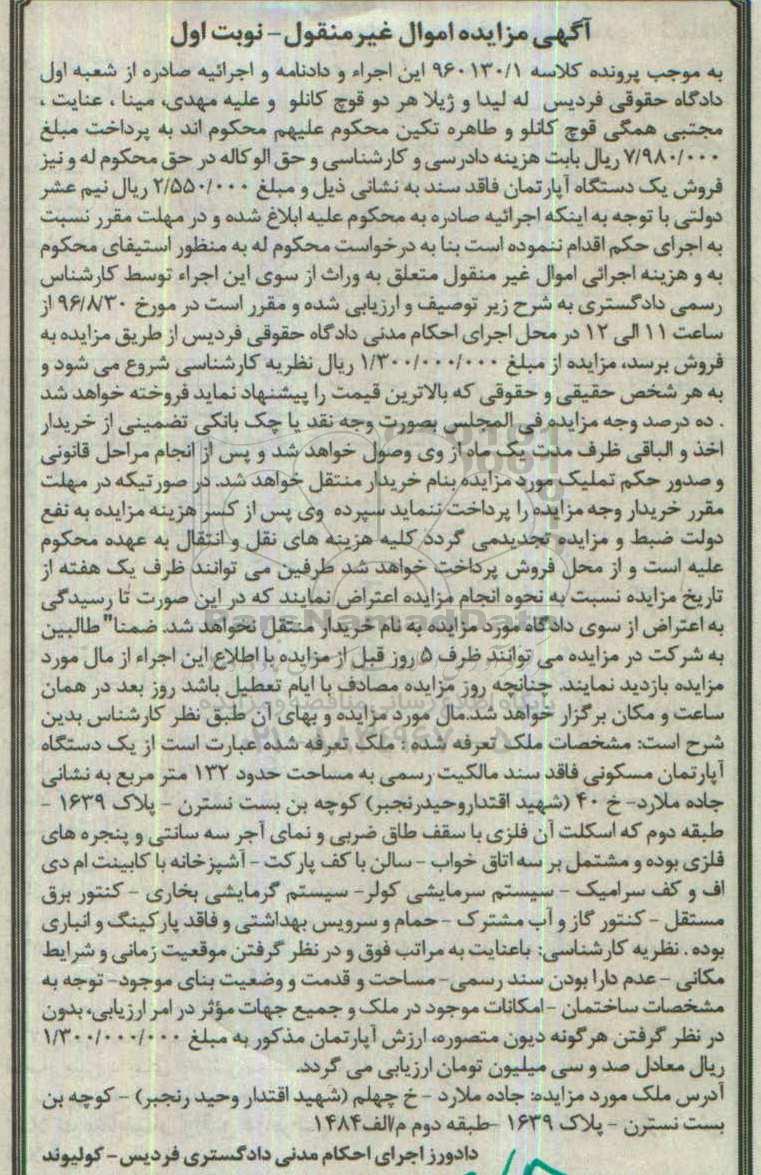 آگهی مزایده اموال غیرمنقول - نوبت اول
به موجب پرونده کلاسه ۹۶۰۱۳۰/۱ این اجراء و دادنامه و اجرائیه صادره از شعبه اول
دادگاه حقوقی فردیس له لیدا و ژیلا هر دو قوچ کانلو و علیه مهدی، مینا ، عنایت ،
مجتبی همگی قوچ کانلو و طاهره تکین محکوم علیهم محکوم اند به پرداخت مبلغ
۷/۹۸۰/۰۰۰ ریال بابت هزینه دادرسی و کارشناسی و حق الوکاله در حق محکوم له و نیز
فروش یک دستگاه آپارتمان فاقد سند به نشانی ذیل و مبلغ ۲/۵۵۰/۰۰۰ ریال نیم عشر
دولتی با توجه به اینکه اجرائیه صادره به محکوم علیه ابلاغ شده و در مهلت مقرر نسبت
به اجرای حکم اقدام ننموده است بنا به درخواست محکوم له به منظور استیفای محکوم
به و هزینه اجرائی اموال غیر منقول متعلق به وراث از سوی این اجراء توسط کارشناس
رسمی دادگستری به شرح زیر توصیف و ارزیابی شده و مقرر است در مورخ ۹۶/۸/۳۰ از
ساعت ۱۱ الی ۱۲ در محل اجرای احکام مدنی دادگاه حقوقی فردیس از طریق مزایده به
فروش برسد، مزایده از مبلغ ۱/۳۰۰/۰۰۰/۰۰۰ ریال نظریه کارشناسی شروع می شود و
به هر شخص حقیقی و حقوقی که بالاترین قیمت را پیشنهاد نماید فروخته خواهد شد
. ده درصد وجه مزایده فی المجلس بصورت وجه نقد یا چک بانکی تضمینی از خریدار
اخذ و الباقی ظرف مدت یک ماه از وی وصول خواهد شد و پس از انجام مراحل قانونی
و صدور حکم تملیک مورد مزایده بنام خریدار منتقل خواهد شد. در صورتیکه در مهلت
مقرر خریدار وجه مزایده را پرداخت ننماید سپرده وی پس از کسر هزینه مزایده به نفع
دولت ضبط و مزایده تجدیدمی گردد کلیه هزینه های نقل و انتقال به عهده محکوم
علیه است و از محل فروش پرداخت خواهد شد طرفین می توانند ظرف یک هفته از
تاریخ مزایده نسبت به نحوه انجام مزایده اعتراض نمایند که در این صورت تا رسیدگی
به اعتراض از سوی دادگاه مورد مزایده به نام خریدار منتقل نخواهد شد. ضمنا" طالبین
به شرکت در مزایده می توانند ظرف ۵ روز قبل از مزایده با اطلاع این اجراء از مال مورد
مزایده بازدید نمایند. چنانچه روز مزایده مصادف با ایام تعطیل باشد روز بعد در همان
ساعت و مکان برگزار خواهد شد.مال مورد مزایده و بهای آن طبق نظر کارشناس بدین
شرح است: مشخصات ملک تعرفه شده : ملک تعرفه شده عبارت است از یک دستگاه
آپارتمان مسکونی فاقد سند مالکیت رسمی به مساحت حدود ۱۳۲ متر مربع به نشانی
جاده ملارد- خ ۴۰ (شهید اقتداروحیدرنجبر) کوچه بن بست نسترن - پلاک ۱۶۳۹ -
طبقه دوم که اسکلت آن فلزی با سقف طاق ضربی و نمای آجر سه سانتی و پنجره های
فلزی بوده و مشتمل بر سه اتاق خواب - سالن با کف پارکت - آشپزخانه با کابینت ام دی
اف و کف سرامیک - سیستم سرمایشی کولر- سیستم گرمایشی بخاری - کنتور برق
مستقل - کنتور گاز و آب مشترک - حمام و سرویس بهداشتی و فاقد پارکینگ و انباری
بوده . نظریه کارشناسی: باعنایت به مراتب فوق و در نظر گرفتن موقعیت زمانی و شرایط
مکانی - عدم دارا بودن سند رسمی- مساحت و قدمت و وضعیت بنای موجود- توجه به
مشخصات ساختمان - امکانات موجود در ملک و جمیع جهات مؤثر در امر ارزیابی، بدون
در نظر گرفتن هرگونه دیون متصوره، ارزش آپارتمان مذکور به مبلغ ۱/۳۰۰/۰۰۰/۰۰۰
ریال معادل صد و سی میلیون تومان ارزیابی می گردد.
آدرس ملک مورد مزایده: جاده ملارد - خ چهلم (شهید اقتدار وحید رنجبر) - کوچه بن
بست نسترن - پلاک ۱۶۳۹ -طبقه دوم م/الف۱۴۸۴
دادورز اجرای احکام مدنی دادگستری فردیس - کولیوند